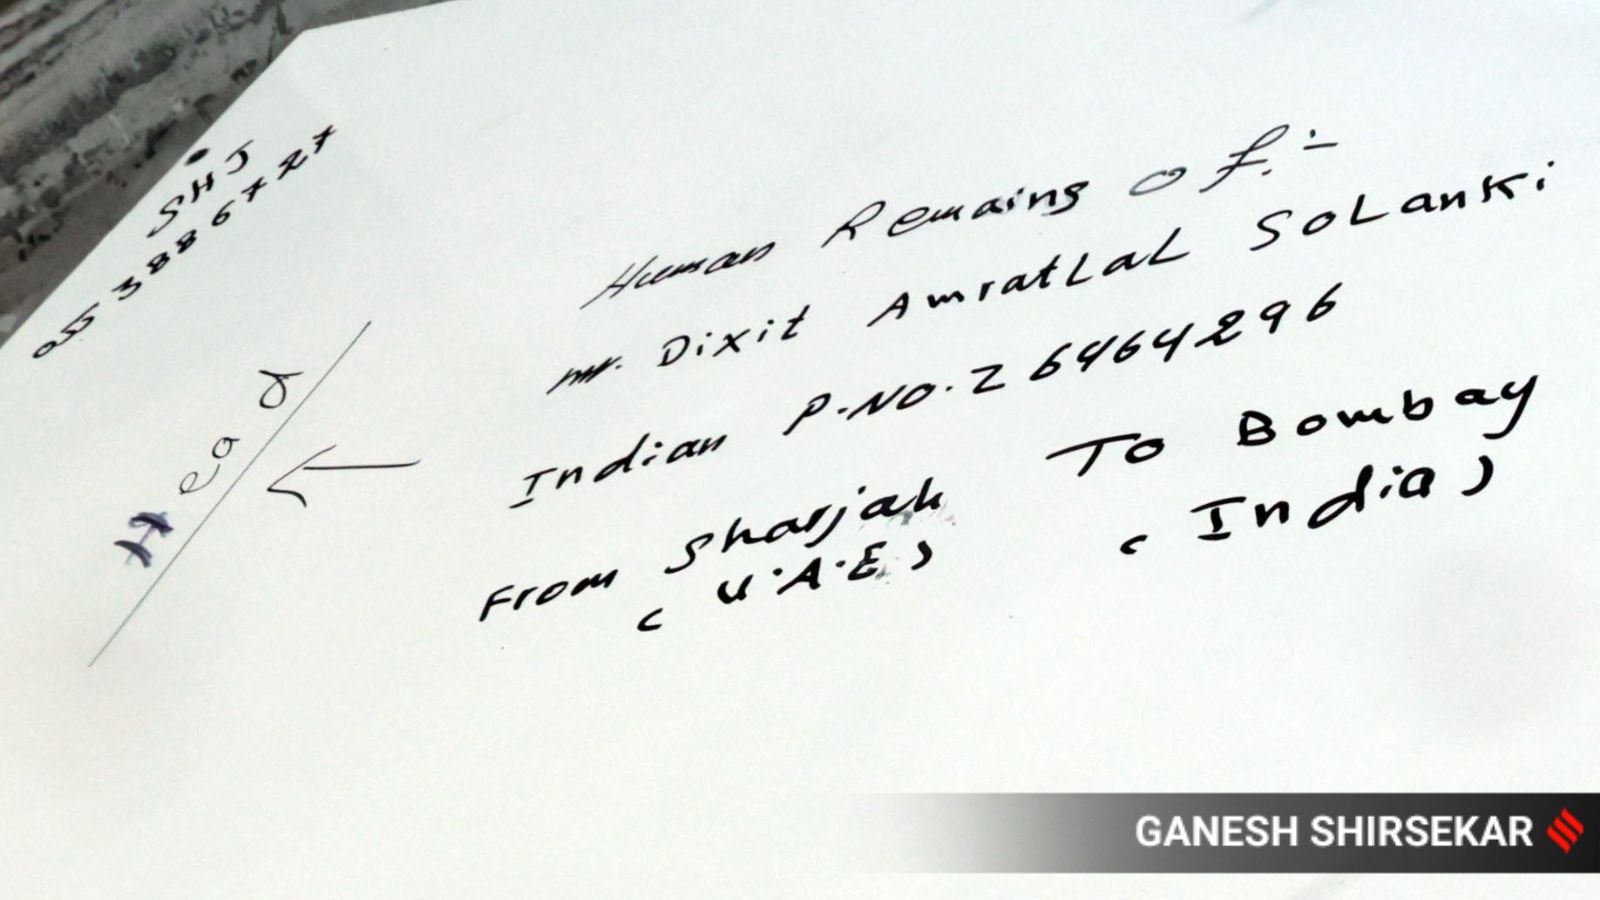 SHJ
0553886727
Head
Human Remains of:-
mr. Dixit AmratLaL SoLanki
Indian P.NO. Z 6464296
From Sharjah To Bombay
(U.A.E) (India)
GANESH SHIRSEKAR